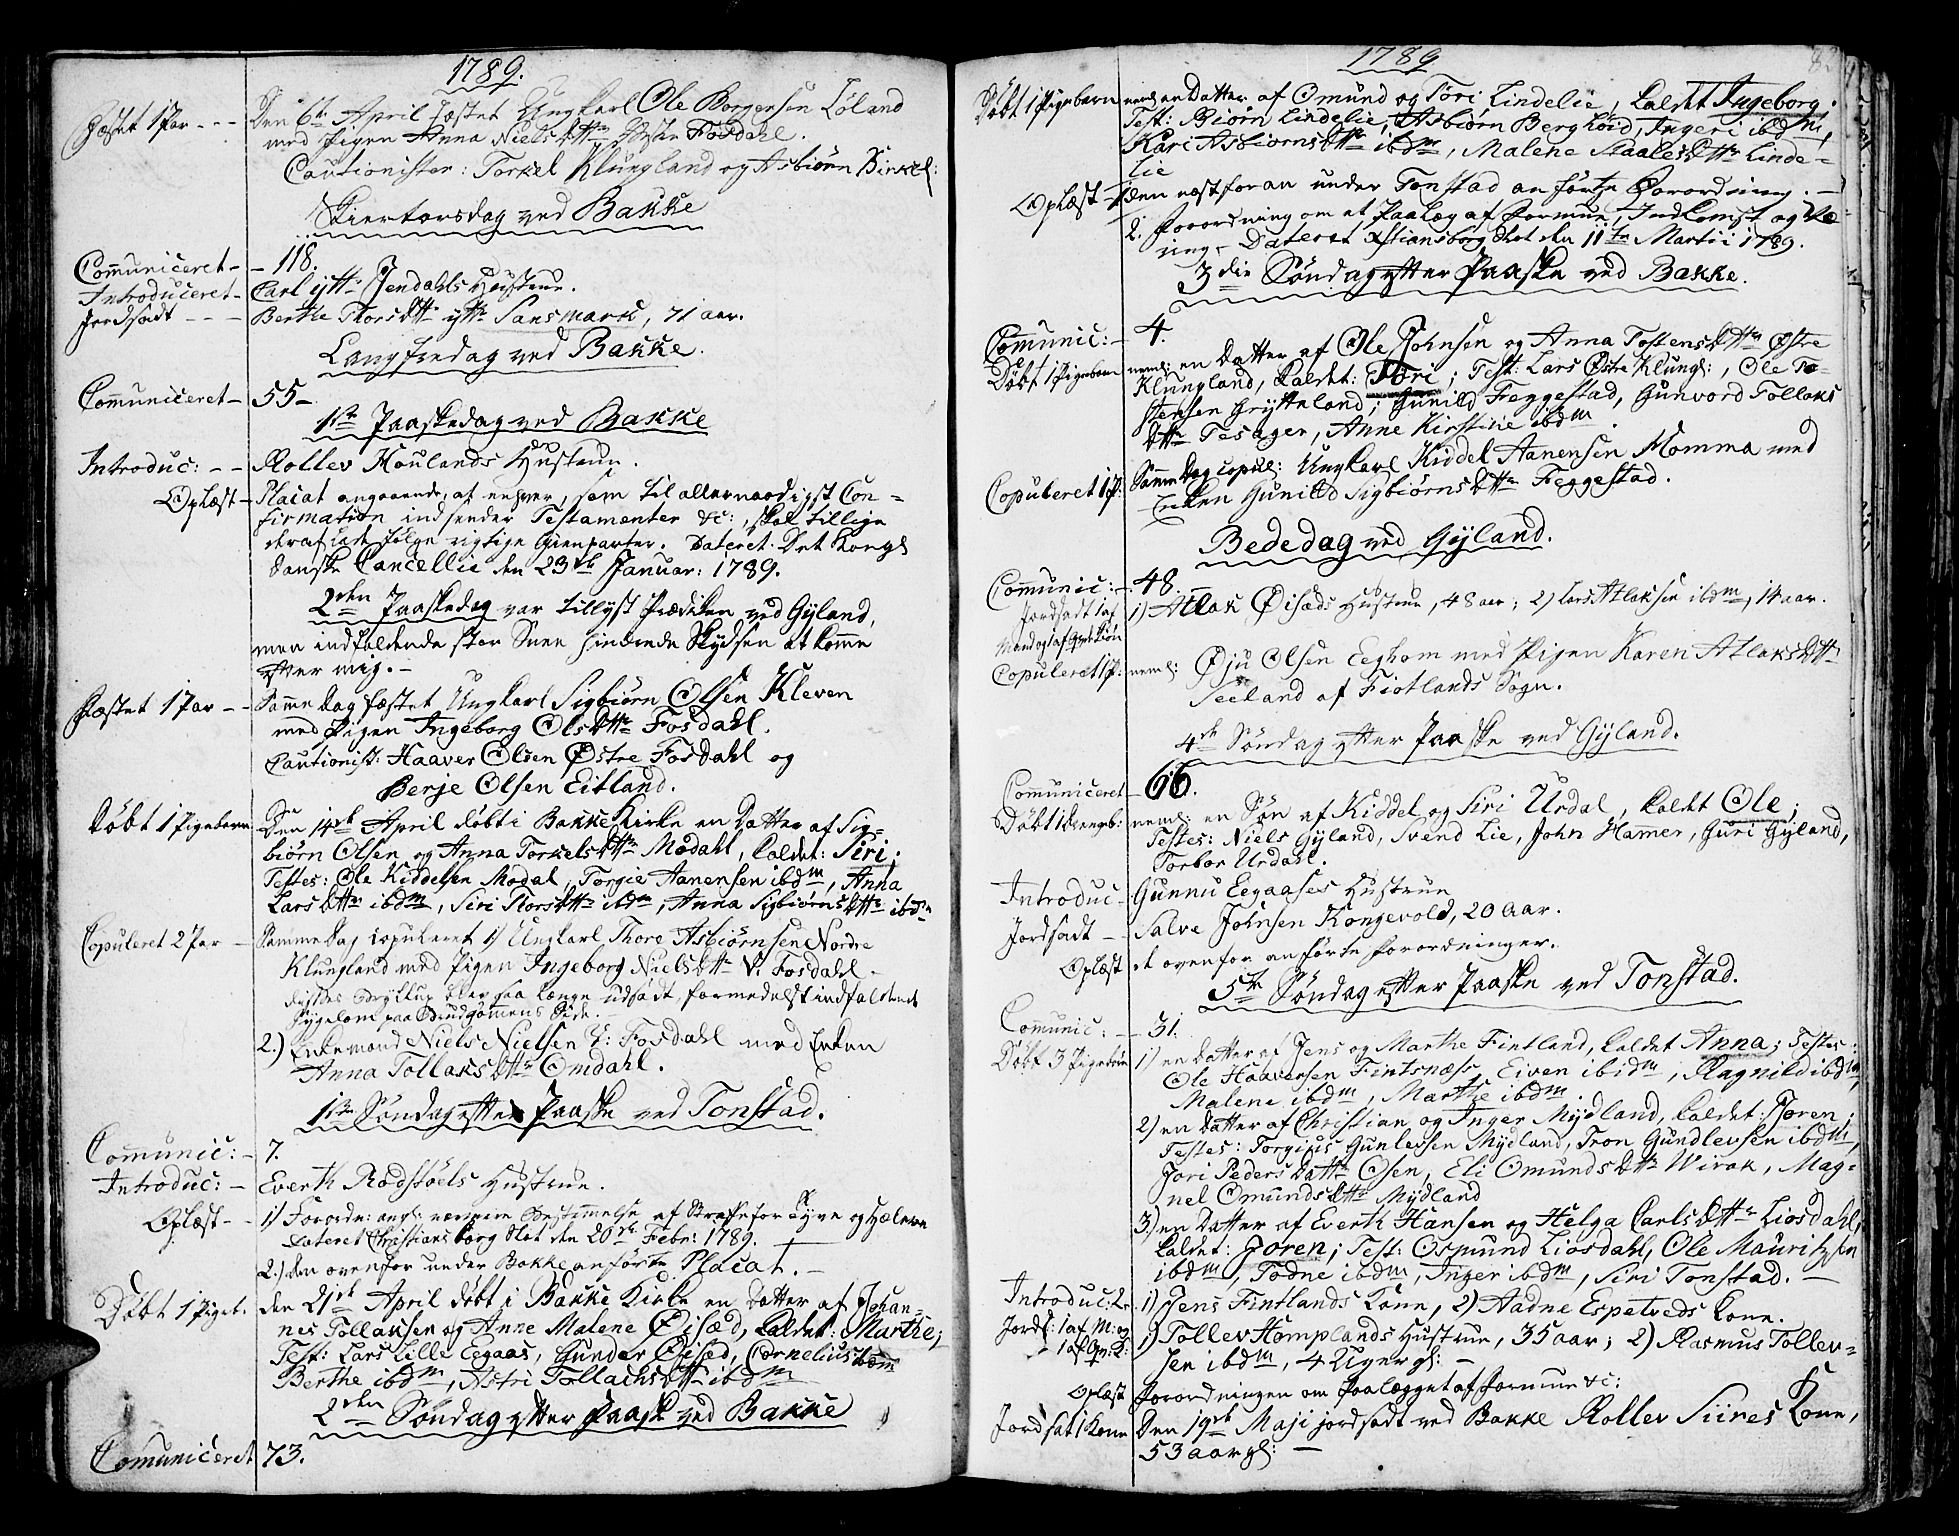 1789.
Fæstet 1 Par - - - Den 6te April fæstet Ungkarl Ole Borgersen Löland
med Pigen Anna Nielsdttr Vestre Fosdahl.
Cautionister: Torkel Klungland og Asbiörn Birkel:
Skiertorsdag ved Bakke
Communiceret - - 118.
Introduceret - Carl ytt: Jendahls Hustrue.
Jordsadt - - - Berthe Thorsdttr ytt: Sansmark, 71 aar.
Langfredag ved Bakke.
Communiceret - 55 -
1ste Paaskedag ved Bakke
Introduc: - - Rollev Houlands Hustrue.
Oplæst - Placat angaaende, at enhver, som til allernaadigst Con-
firmation indsender Testamenter &c:, skal tillige
deraf lade fölge rigtige Gienparter. Dateret Det Kongl
danske Cancellie den 23de Januar: 1789.
2den Paaskedag var tillyst Prædiken ved Gyland,
men indfaldende stor Snee hindrede Skydsen at komme
efter mig. -
Fæstet 1 Par - - Samme Dag fæstet Ungkarl Sigbiörn Olsen Kleven
med Pigen Ingeborg Olsdttr Fosdahl.
Cautionist: Haaver Olsen Östre Fosdahl og
Berje Olsen Eitland.
Döbt 1 Pigebarn Den 14de April döbt i Bakke Kirke en Datter af Sig-
biörn Olsen og Anna Torkelsdttr Modahl, kaldet: Siri;
Testes: Ole Kiddelsen Modal, Torgie Aanensen ibdm, Anna
Larsdttr ibdm, Siri Thorsdttr ibdm, Anna Sigbiörnsdttr ibdm
Copuleret 2 Par - Samme Dag copuleret 1) Ungkarl Thore Asbiörnsen Nordre
Klungland med Pigen Ingeborg Nielsdttr V. Fosdahl -
disses Bryllup blev saa længe udsadt, formedelst indfaldende
Sygdom paa Brudgommens Side. -
2.) Enkemand Niels Nielsen V: Fosdahl med Enken
Anna Tollaksdttr Omdahl.
1ste Söndag efter Paaske ved Tonstad.
Communic: - 7.
Introduc: - Everth Rødstöels Hustrue.
Oplæst - - 1) Forordn: ang: nærmere Bestemmelse af Straf for Tyve og Hælere
Dateret Christiansborg Slot den 20de Febr: 1789.
2.) den ovenfor under Bakke anförte Placat. -
Döbt 1 Pigeb. den 21de April döbt i Bakke Kirke en Datter af Johan-
nes Tollaksen og Anne Malene Öisæd, kaldet: Marthe;
Test: Lars Lille Eegaas, Gunder Öised, Cornelius ibdm
Berthe ibdm, Astri Tollachsdttr ibdm
2den Söndag efter Paaske ved Bakke
Comuniceret 73.
1789
Döbt 1 Pigebarn neml en Datter af Omund og Tori Lindelie, kaldet Ingeborg.
Test: Biörn Lindelie, Asbiörn Berghöid, Ingeri ibdm,
Kari Asbiörnsdttr ibdm, Malene Staalesdttr Linde-
lie
Oplæst 1 den næstforan under Tonstad anförte Forordning. -
2. Forordning om at Paalæg af Formue, Indkomst og Næ-
ring - Dateret Xstiansborg Slot den 11te Martii 1789.
3die Söndag efter Paaske ved Bakke.
Comunic: - 4.
Döbt 1 Pigebarn neml: en Datter af Ole Johnsen og Anna Tostensdttr Östre
Klungland, kaldet: Tori; Test: Lars Östre Klungl:, Ole To-
stensen Gryttnland; Gunild Feggestad, Gunvord Tollaks
dttr Tesager, Anne Kirstine ibdm.
Copuleret 1 P: Samme Dag copul: Ungkarl Kiddel Aanensen Momma med
Enken Gunild Sigbiörnsdttr Feggestad.
Bededag ved Gyland.
Communic: - 48.
Jordsadt 1 af 1) Atlak Öisæds Hustrue, 48 aar; 2) Lars Atlaksen ibdm, 14 aar.
Mand og 1 af Qvindekiön
Copuleret 1 P: neml: Öju Olsen Eeghom med Pigen Karen Atlaksdttr
Seeland af Fiotlands Sogn.
4de Söndag efter Paaske ved Gyland.
Communiceret - 66.
Döbt 1 drengb: neml: en Sön af Kiddel og Siri Urdal, kaldet Ole;
Testes: Niels Gyland, Svend Lie, John Hamer, Guri Gyland,
Torbor Urdahl.
Introduc - Gunnu Eegaases Hustrue
Jordsadt - Salve Johnsen Kongevold, 20 aar.
Oplæst de ovenfor anförte Forordninger.
5te Söndag efter Paaske ved Tonstad.
Comunic: - - 31.
Döbt 3 Pigebörn 1) en Datter af Jens og Marthe Fintland, kaldet Anna; Testes:
Ole Haaversen Fintsnæss, Eiven ibidm, Ragnild ibdm,
Malene ibdm, Marthe ibdm.
2) en Datter af Christian og Inger Mydland, kaldet: Joren;
Testes: Torgius Gunlevsen Mydland, Tron Gundlevsen ibdm,
Jori Pedersdattr Osen, Eli Omundsdttr Wirak, Mag-
nel Omundsdttr Mydland
3) en Datter af Everth Hansen og Helga Carlsdttr Liosdahl,
kaldet: Joren; Test: Osmund Liosdahl, Ole Mauritzsen
ibdm, Todne ibdm, Inger ibdm, Siri Tonstad. -
Introduc: 2. 1) Jens Fintlands Kone, 2) Aadne Espetveds Kone.
Jords: 1 af M: og 1) Tollev Homplands Hustrue, 35 aar; 2) Rasmus Tollev-
- 1 af Qv: K: sen ibdm, 4 Uger gl: -
Oplæst Forordningen om Paalægget af Formue &c:
Jordsat 1 Kone Den 19de Maji jordsadt ved Bakke Rollev Siires Kone,
53 aar gl: -